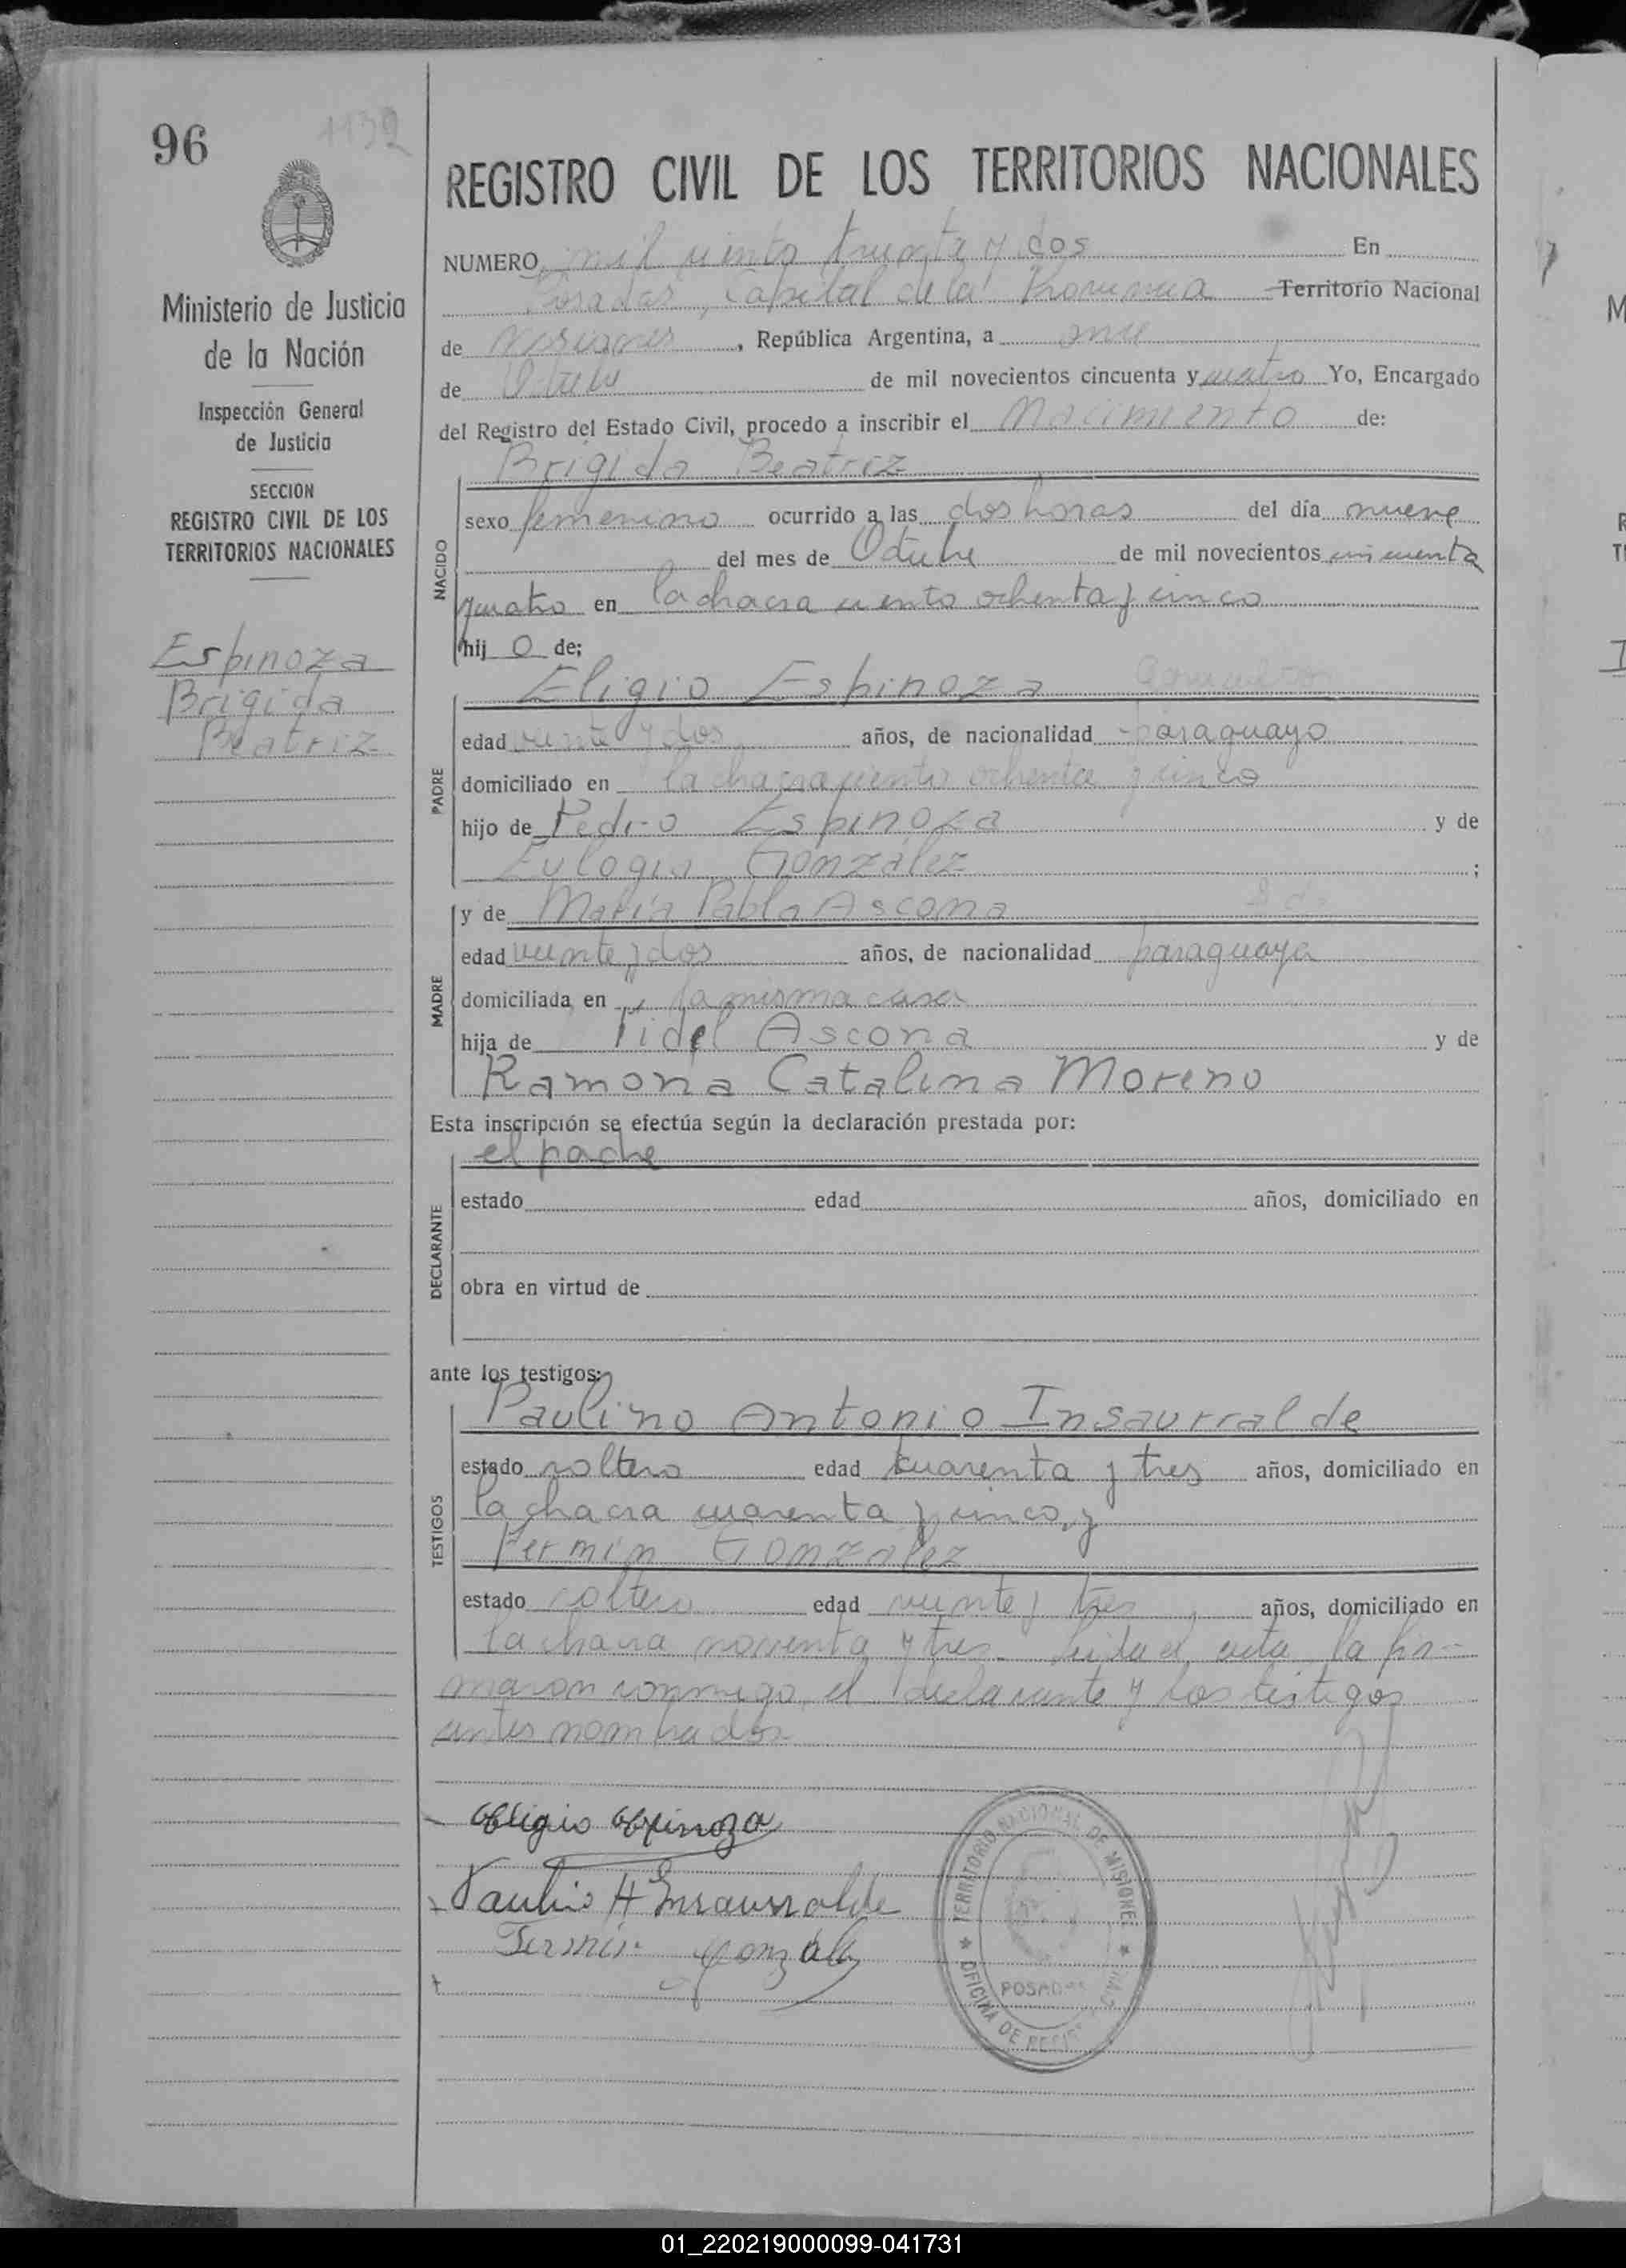 96
1132
Ministerio de Justicia
de la Nación
Inspección General
de Justicia
SECCION
REGISTRO CIVIL DE LOS
TERRITORIOS NACIONALES
Espinoza
Brigida
Beatriz
REGISTRO CIVIL DE LOS TERRITORIOS NACIONALES
NUMERO mil ciento treinta y dos En
Posadas, Capital de la Provincia Territorio Nacional
de Misiones, República Argentina, a once
de Octubre de mil novecientos cincuenta y cuatro Yo, Encargado
del Registro del Estado Civil, procedo a inscribir el Nacimiento de:
Brigida Beatriz
NACIDO
sexo femenino ocurrido a las dos horas del día nueve
del mes de Octubre de mil novecientos cincuenta
y cuatro en la chacra ciento ochenta y cinco
hij o de;
Eligio Espinoza
PADRE
edad veinte y dos años, de nacionalidad paraguayo
domiciliado en la chacra ciento ochenta y cinco
hijo de Pedro Espinoza y de
Eulogia González ;
MADRE
y de María Pabla Ascona
edad veinte y dos años, de nacionalidad paraguaya
domiciliada en la misma casa
hija de Fidel Ascona y de
Ramona Catalina Moreno
Esta inscripción se efectúa según la declaración prestada por:
el padre
DECLARANTE
estado edad años, domiciliado en
obra en virtud de
ante los testigos:
Paulino Antonio Insaurralde
TESTIGOS
estado soltero edad cuarenta y tres años, domiciliado en
la chacra cuarenta y cinco, y
Fermin González
estado soltero edad veinte y tres años, domiciliado en
la chacra noventa y tres. Leida el acta la fir-
maron conmigo, el declarante y los testigos
antes nombrados
Eligio Espinoza
Paulino A Insaurralde
Fermin González
TERRITORIO NACIONAL DE MISIONES
OFICINA DE
POSADAS
01_220219000099-041731